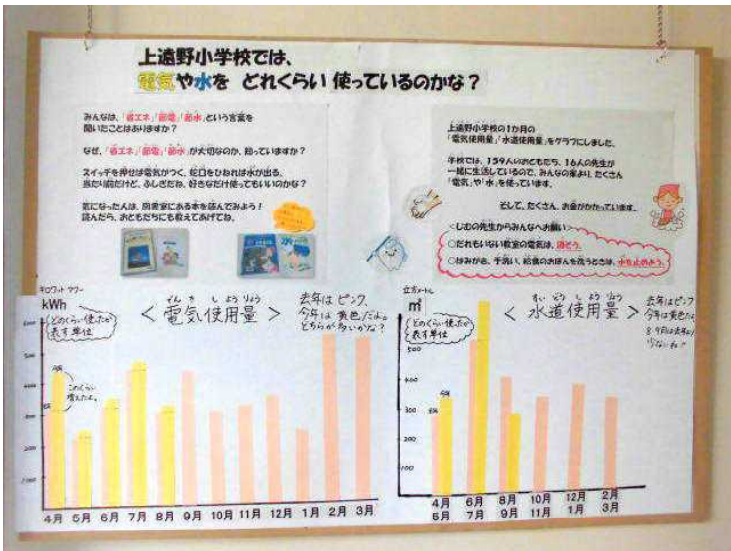 上遠野小学校では、
電気や水を どれくらい 使っているのかな？
みんなは、「省エネ」「節電」「節水」という言葉を
聞いたことはありますか？
なぜ、「省エネ」「節電」「節水」が大切なのか、知っていますか？
スイッチを押せば電気がつく、蛇口をひねれば水が出る、
当たり前だけど、ふしぎだね。好きなだけ使ってもいいのかな？
気になった人は、図書室にある本を読んでみよう！
読んだら、おともだちにも教えてあげてね。
上遠野小学校の1か月の
「電気使用量」「水道使用量」をグラフにしました。
学校では、159人のおともだち、16人の先生が
一緒に生活しているので、みんなの家より、たくさん
「電気」や「水」を使っています。
そして、たくさん、お金がかかっています。
＜じむの先生からみんなへお願い＞
○だれもいない教室の電気は、消そう。
○はみがき、手洗い、給食のおぼんを洗うときは、水を止めよう。
キロワット アワー
kWh
どのくらい使ったか
表す単位
でん き し よう りょう
＜電気使用量＞
去年は ピンク、
今年は 黄色だよ。
どちらが多いかな？
このくらい
増えたよ。
500
400
300
200
100
4月 5月 6月 7月 8月 9月 10月 11月 12月 1月 2月 3月
立方メートル
㎥
どのくらい使ったか
表す単位
すい どう し よう りょう
＜水道使用量＞
去年はピンク
今年は黄色だよ
8.9月は去年より
少ないね!!
500
400
300
200
100
4月 6月 8月 10月 12月 2月
5月 7月 9月 11月 1月 3月